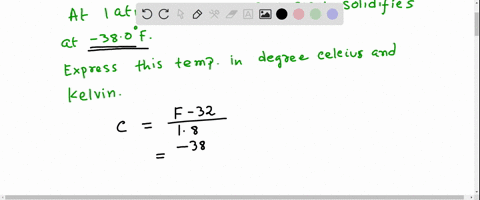 At 1 at solidifies
at -38.0°F.
Express this temp. in degree celcius and
Kelvin.
C = F-32
1.8
= -38